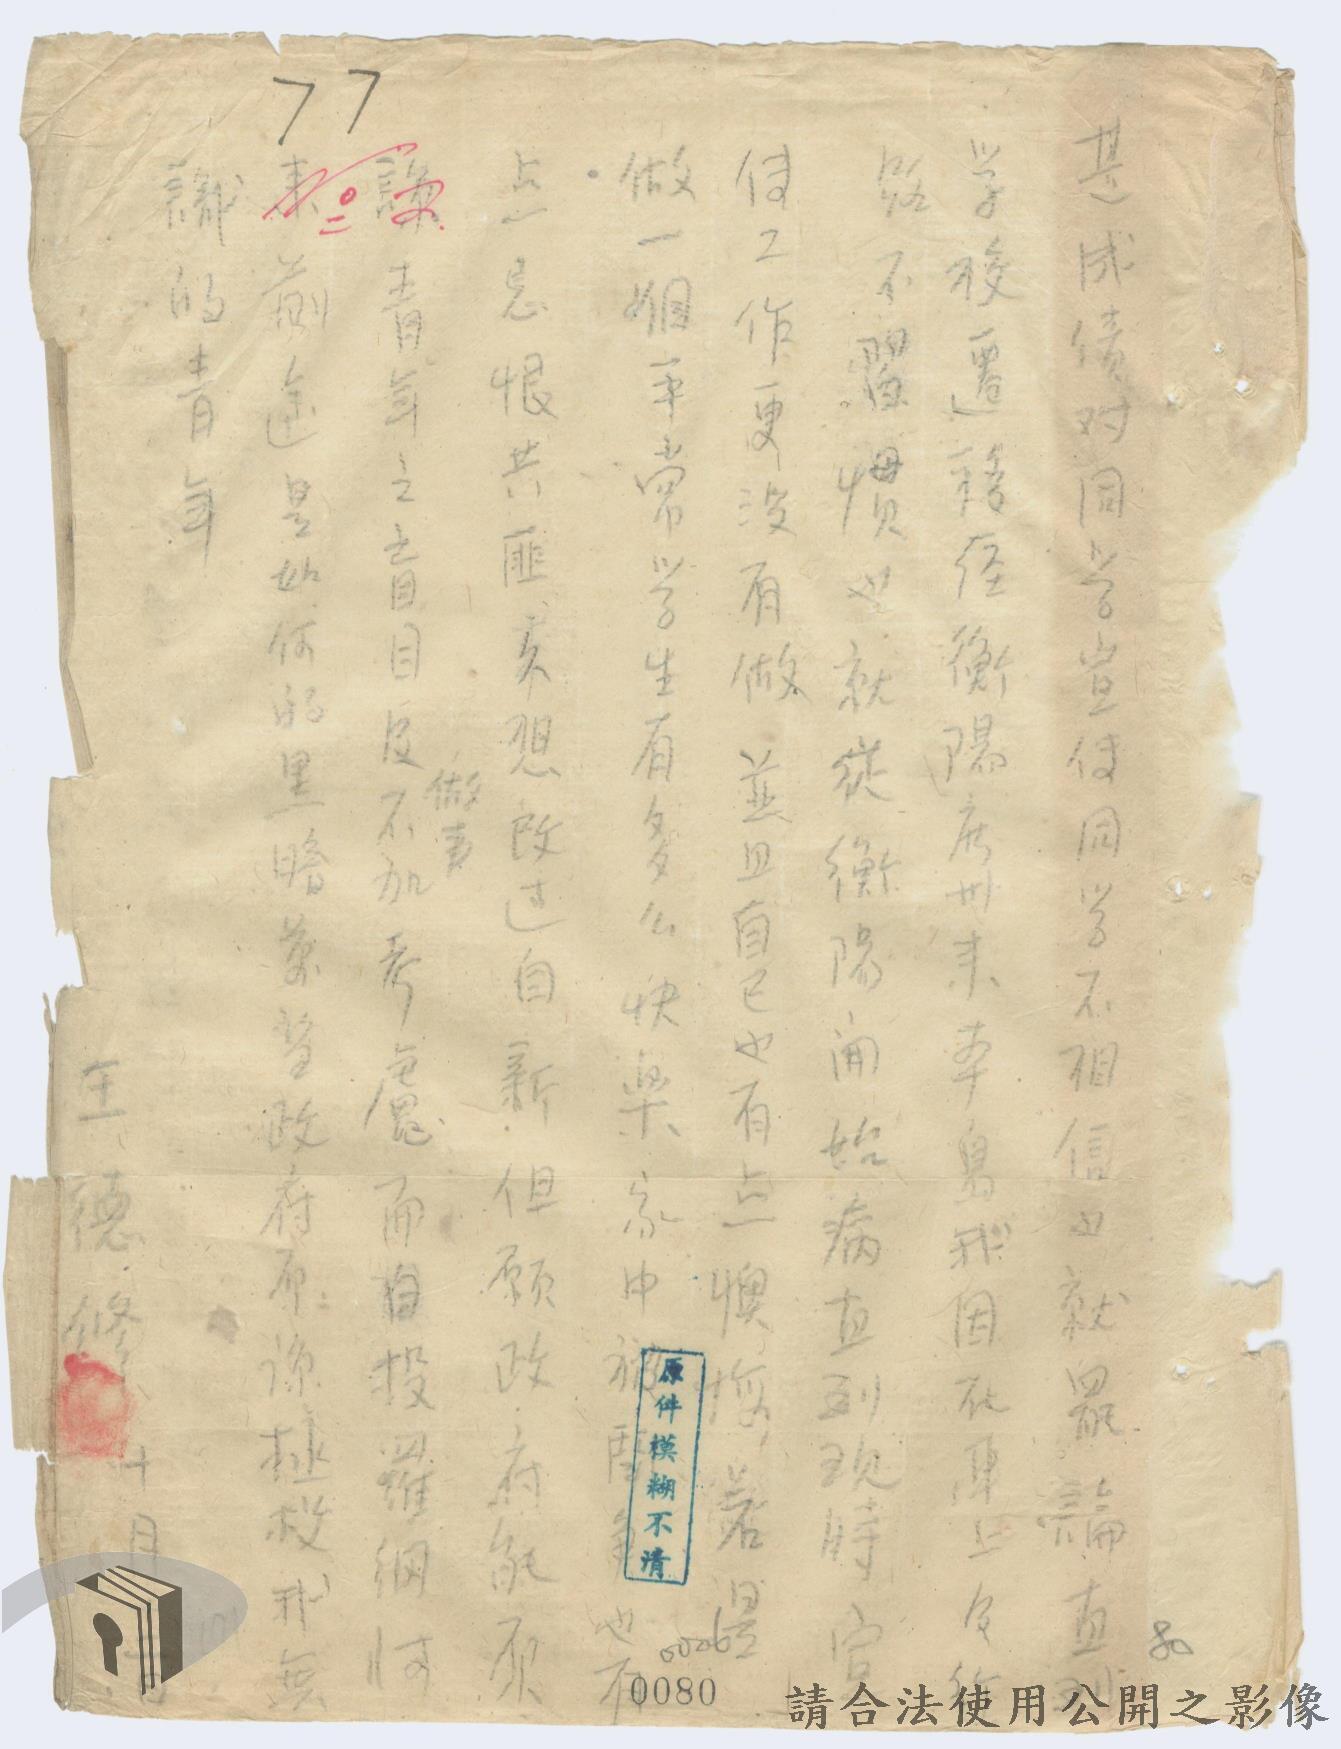 甚成績对同学宣传同学不相信也就罷論直到
学校遷移経衡陽广州来本島我因在車上及行
路不習慣也就從衡陽開始病直到現時宣
传工作更没有做並且自己也有点懊悔若是
做一個平常学生有多么快樂家中被也不
点忌恨共匪想改过自新但願政府能原
諒青年之盲目反不加考慮而自投羅網将
做事
来前途是如何的黑暗希望政府原諒拯救我無
識的青年
王德修十月
77
原件模糊不清
0026
0080
80
請合法使用公開之影像